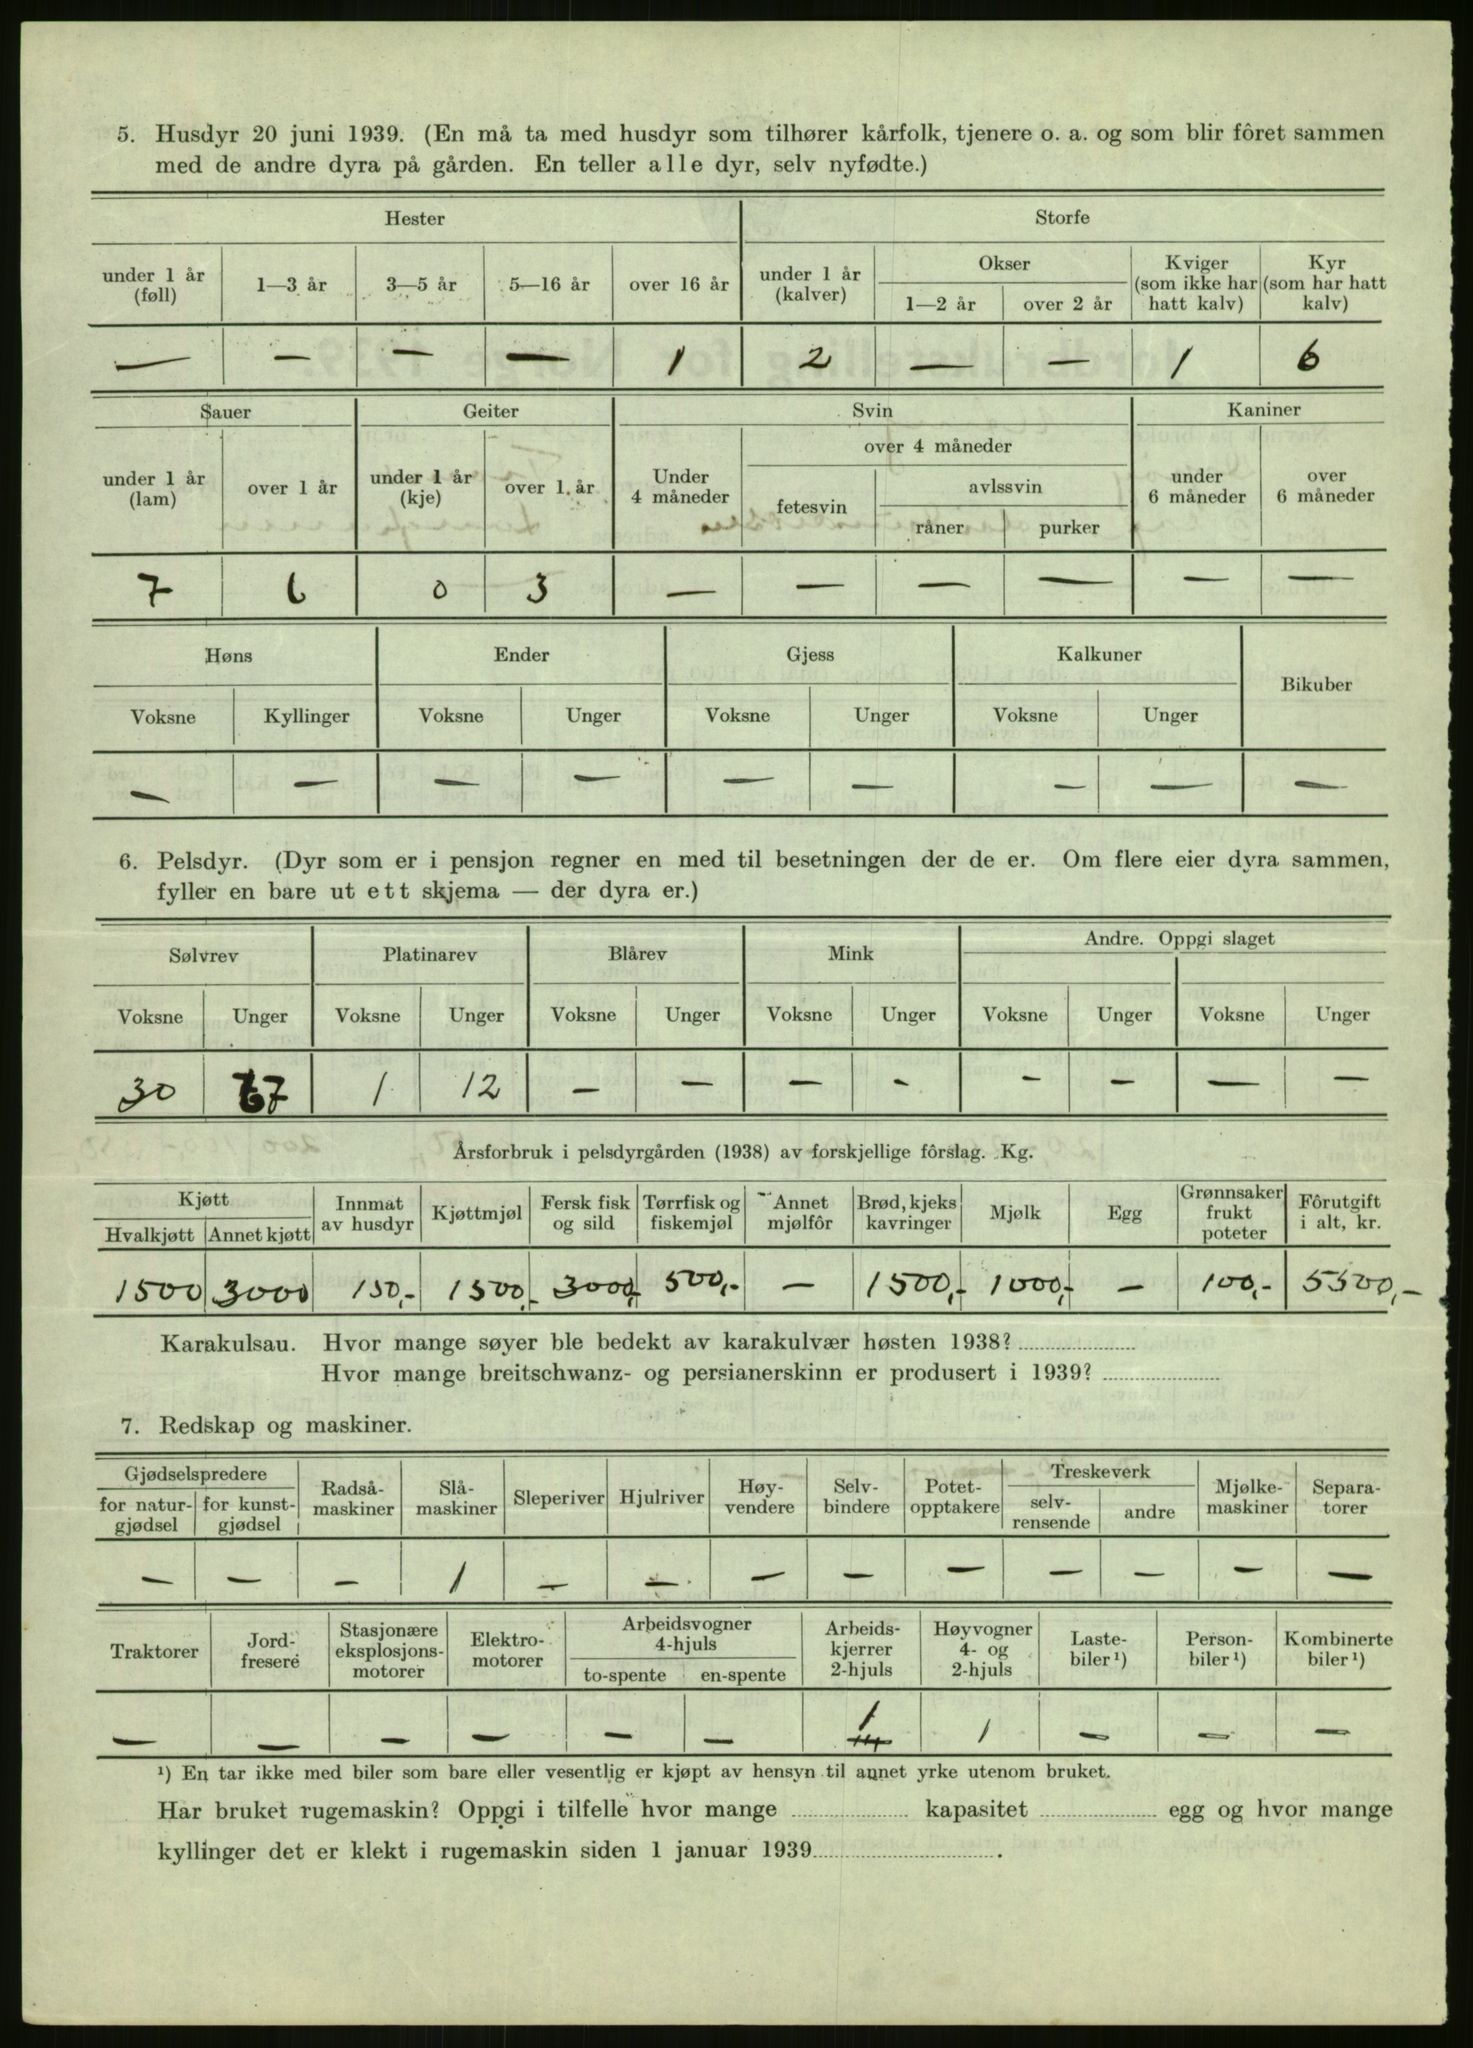 5. Husdyr 20 juni 1939. (En må ta med husdyr som tilhører kårfolk, tjenere o. a. og som blir fôret sammen
med de andre dyra på gården. En teller alle dyr, selv nyfødte.)
Hester Storfe
under 1 år (føll) 1—3 år 3—5 år 5—16 år over 16 år under 1 år (kalver) Okser 1—2 år over 2 år Kviger (som ikke har hatt kalv) Kyr (som har hatt kalv)
— — — — 1 2 — — 1 6
Sauer Geiter Svin Kaniner
under 1 år (lam) over 1 år under 1 år (kje) over 1 år Under 4 måneder over 4 måneder fetesvin avlssvin råner purker under 6 måneder over 6 måneder
7 6 0 3 — — — — — —
Høns Ender Gjess Kalkuner Bikuber
Voksne Kyllinger Voksne Unger Voksne Unger Voksne Unger
— — — — — — — — —
6. Pelsdyr. (Dyr som er i pensjon regner en med til besetningen der de er. Om flere eier dyra sammen,
fyller en bare ut ett skjema — der dyra er.)
Sølvrev Platinarev Blårev Mink Andre. Oppgi slaget
Voksne Unger Voksne Unger Voksne Unger Voksne Unger Voksne Unger Voksne Unger
30 67 1 12 — — — - - — — —
Årsforbruk i pelsdyrgården (1938) av forskjellige fôrslag. Kg.
Kjøtt Hvalkjøtt Annet kjøtt Innmat av husdyr Kjøttmjøl Fersk fisk og sild Tørrfisk og fiskemjøl Annet mjølfôr Brød, kjeks kavringer Mjølk Egg Grønnsaker frukt poteter Fôrutgift i alt, kr.
1500 3000 150,- 1500,- 3000,- 500,- — 1500,- 1000,- — 100,- 5500,-
Karakulsau. Hvor mange søyer ble bedekt av karakulvær høsten 1938?
Hvor mange breitschwanz- og persianerskinn er produsert i 1939?
7. Redskap og maskiner.
Gjødselspredere for naturgjødsel for kunstgjødsel Radsåmaskiner Slåmaskiner Sleperiver Hjulriver Høyvendere Selvbindere Potetopptakere Treskeverk selvrensende andre Mjølkemaskiner Separatorer
— — — 1 — — — — — — — — —
Traktorer Jordfresere Stasjonære eksplosjonsmotorer Elektromotorer Arbeidsvogner 4-hjuls to-spente en-spente Arbeidskjerrer 2-hjuls Høyvogner 4- og 2-hjuls Lastebiler¹) Personbiler¹) Kombinerte biler¹)
— — — — — — 1 1 — — —
¹) En tar ikke med biler som bare eller vesentlig er kjøpt av hensyn til annet yrke utenom bruket.
Har bruket rugemaskin? Oppgi i tilfelle hvor mange kapasitet egg og hvor mange
kyllinger det er klekt i rugemaskin siden 1 januar 1939 .